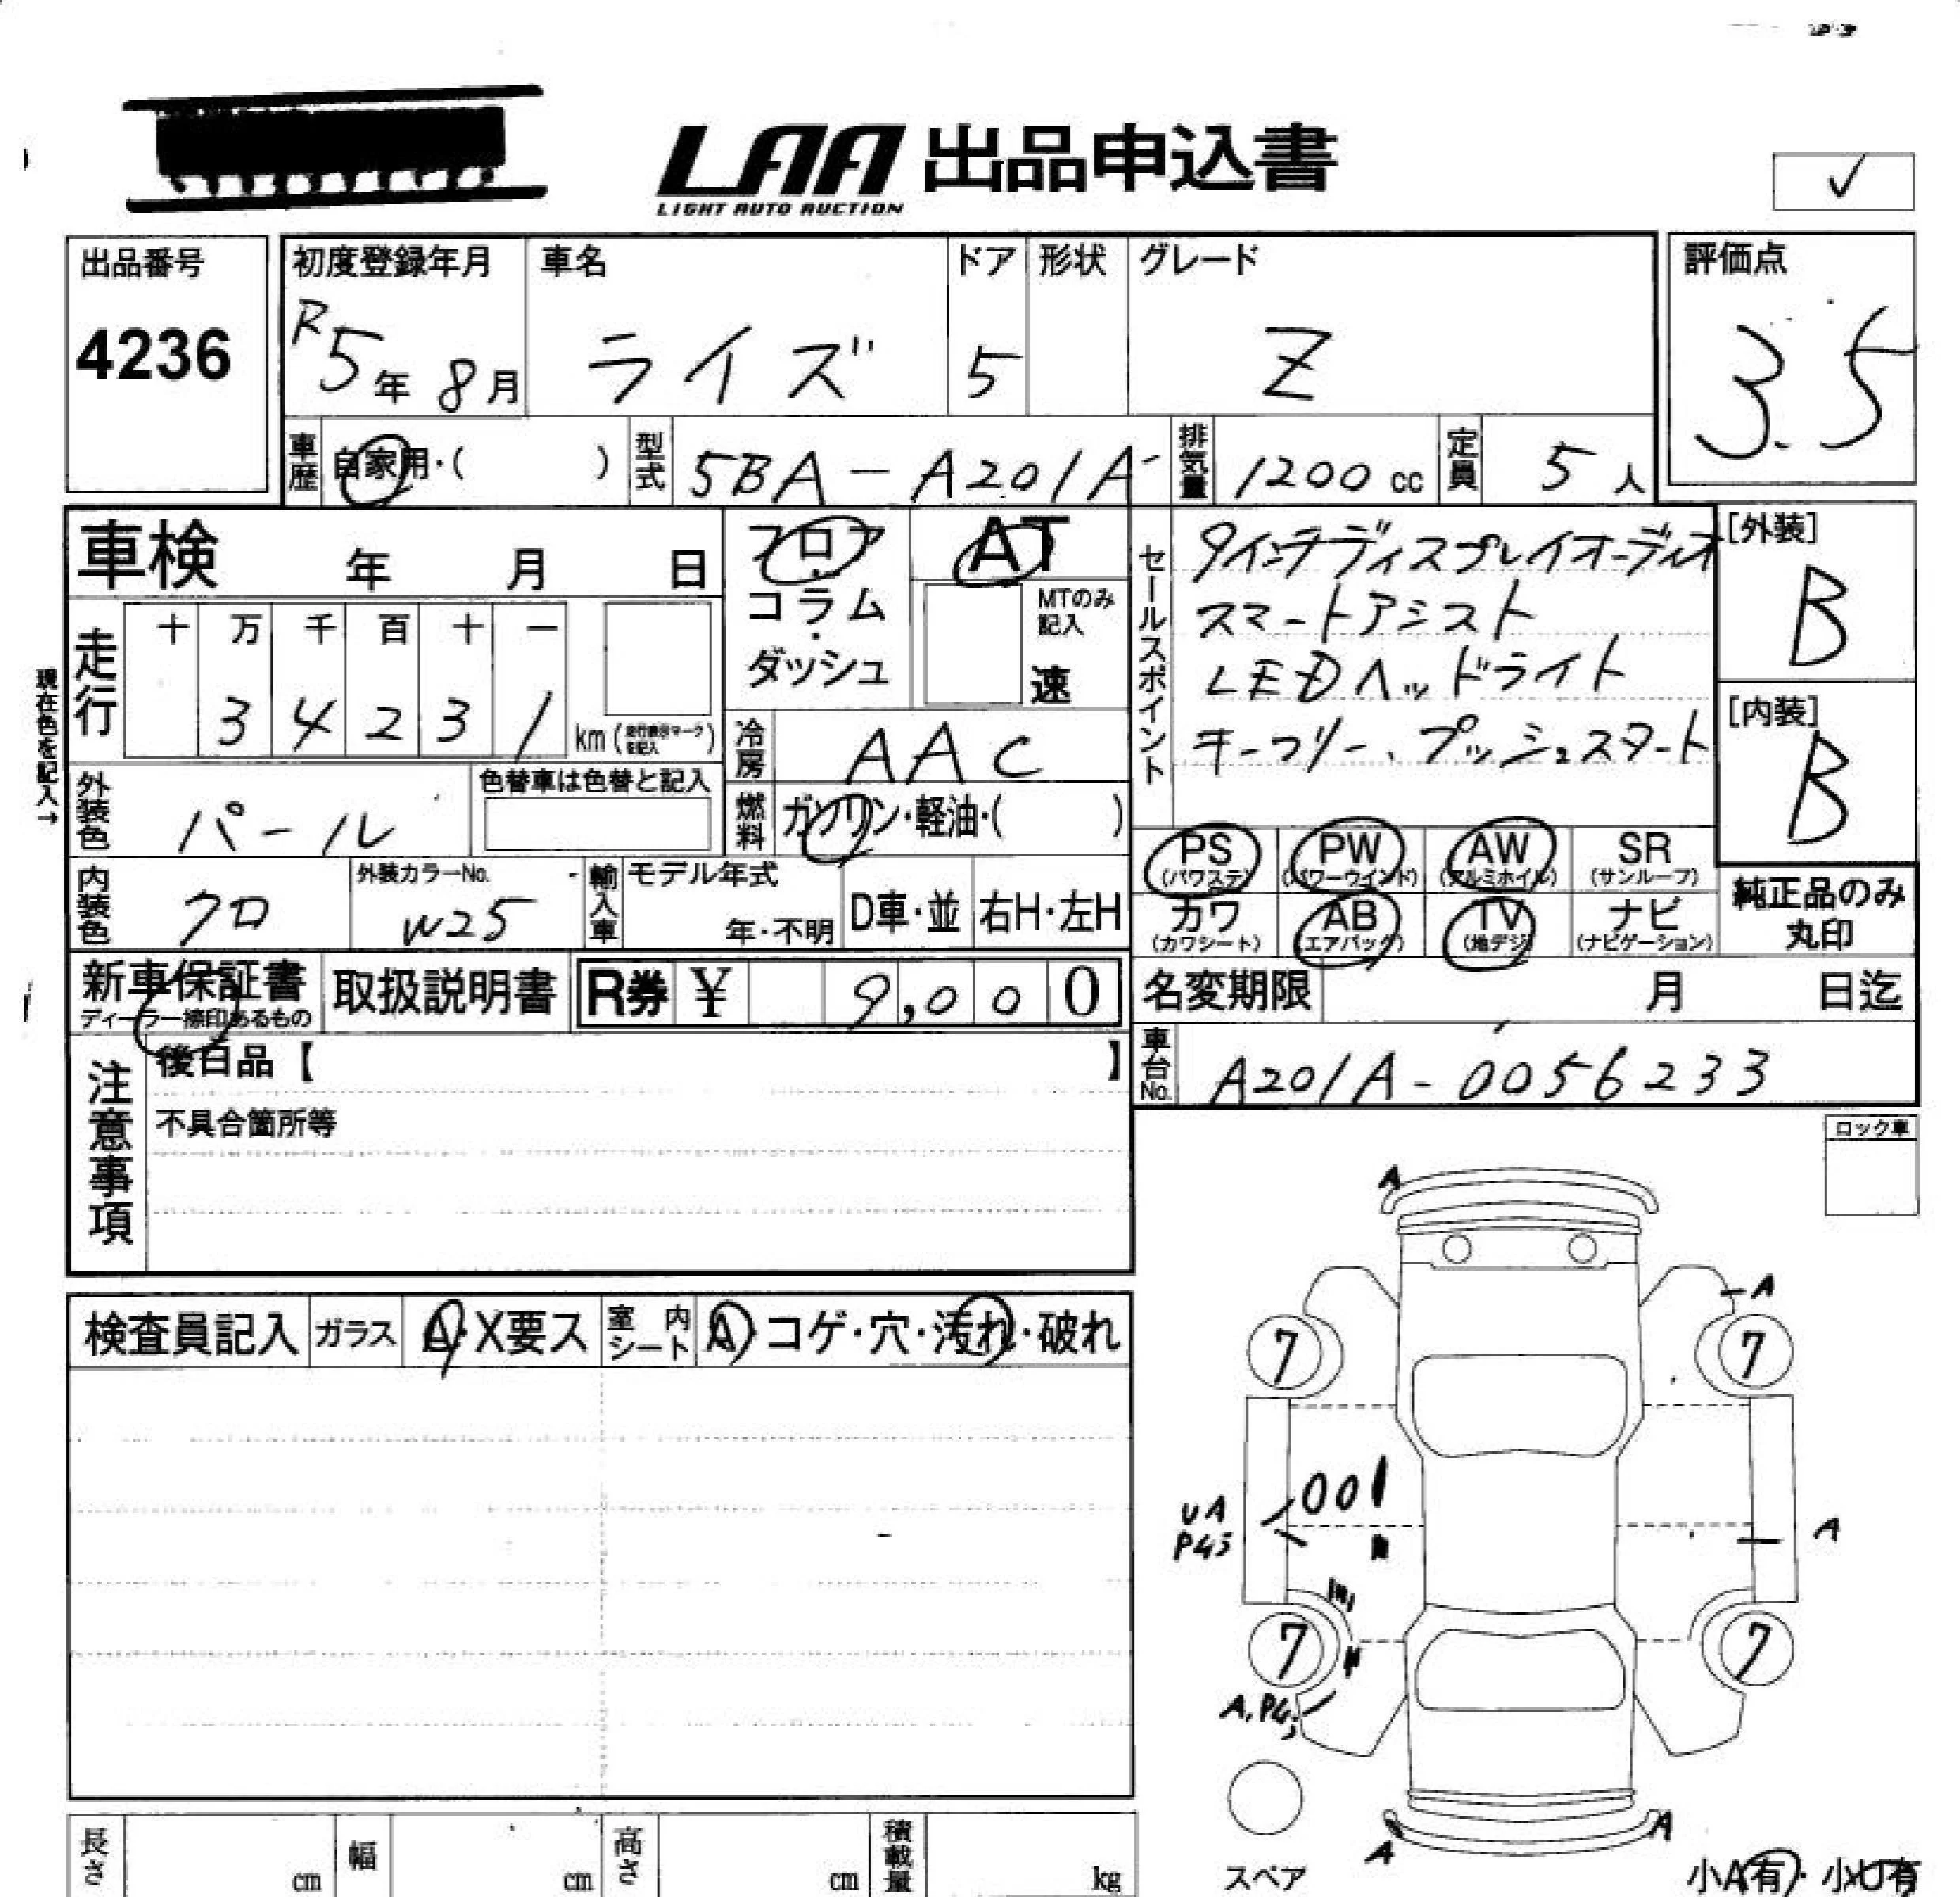 LAA 出品申込書
LIGHT AUTO AUCTION
✓
出品番号
4236
初度登録年月
R5年 8月
車名
ライズ
ドア
5
形状
グレード
Z
評価点
3.5
車歴 自家用・( )
型式 5BA-A201A-
排気量 1200 cc
定員 5人
車検 年 月 日
フロア・コラム・ダッシュ
AT
MTのみ記入
速
セールスポイント
9インチディスプレイオーディオ
スマートアシスト
LEDヘッドライト
キーフリー、プッシュスタート
[外装]
B
[内装]
B
現在色を記入→
走行
十 万 千 百 十 一
3 4 2 3 1 km
(走行表示マークを記入)
冷房 AAC
外装色 パール
色替車は色替と記入
燃料 ガソリン・軽油・( )
PS (パワステ)
PW (パワーウインド)
AW (アルミホイル)
SR (サンルーフ)
カワ (カワシート)
AB (エアバック)
TV (地デジ)
ナビ (ナビゲーション)
純正品のみ丸印
内装色 クロ
外装カラーNo. W25
輸入車
モデル年式
年・不明
D車・並
右H・左H
新車保証書
ディーラー捺印あるもの
取扱説明書
R券 ¥ 9,000
名変期限 月 日迄
車台No. A201A-0056233
注意事項
後日品【 】
不具合箇所等
ロック車
検査員記入
ガラス A・X要ス
室内シート A・コゲ・穴・汚れ・破れ
A
A
7 7
001
UA
P45
A
7 7
A,P45
A A
スペア
長さ cm
幅 cm
高さ cm
積載量 kg
小A有・小U有